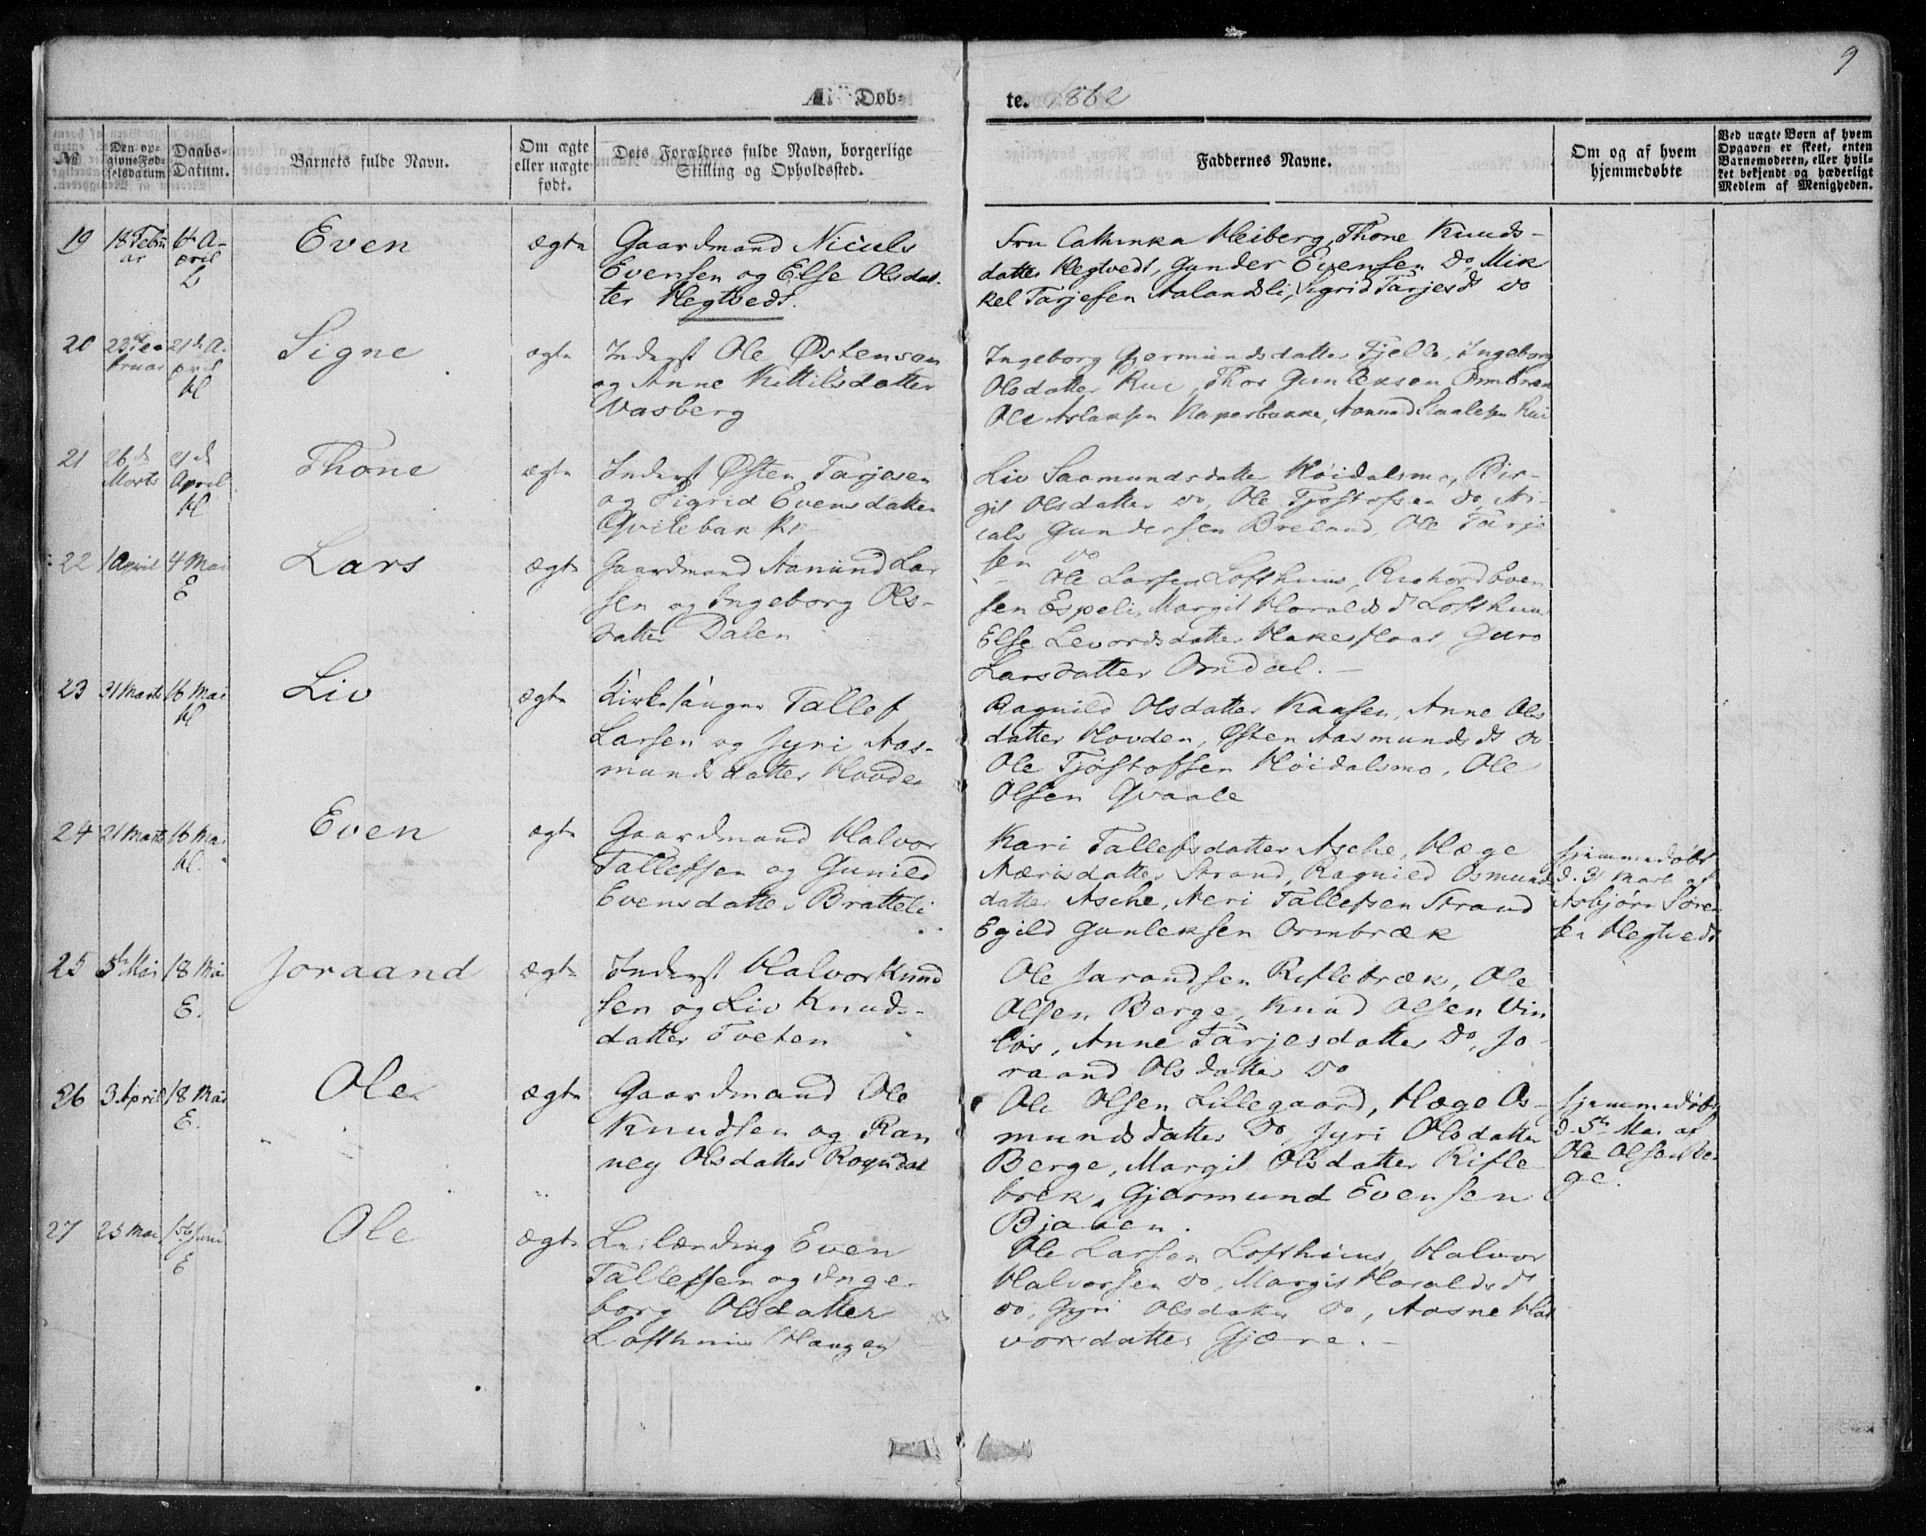 9
A. Døb-
te. 1862
№
Den op-
givne Fød-
selsdatum
Daabs-
Datum.
Barnets fulde Navn.
Om ægte
eller uægte
født.
Dets Forældres fulde Navn, borgerlige
Stilling og Opholdssted.
Faddernes Navne.
Om og af hvem
hjemmedøbte
Ved uægte Børn af hvem
Opgaven er skeet, enten
Barnemoderen, eller hvil-
ket bekjendt og hæderligt
Medlem af Menigheden.
19
18 Febru
ar
A-
pril
L
Even
ægte
Gaardmand Niculs
Evensen og Else Olsdat-
ter Hegtvedt.
Fru Cathinka Heiberg, Thone Knuds-
datter Hegtvedt, Gunder Evensen Do, Mik
kel Tarjesen Aalandsli, Sigrid Tarjesd. Do
20
23de Fe
bruar
21de A-
pril
Kl
Signe
ægte
Inderst Ole Østensen
og Anne Kittilsdatter
Vasberg
Ingeborg Gjermundsdatter Fjelle, Ingeborg
Olsdatter Rui, Thor Gunleksen Ormbræk
Ole Aslaksen Kaparbakke, Aanund Rui
21
26de
Marts
21de
April
Kl
Thone
ægte
Inderst Østen Tarjesen
og Sigrid Evensdatter
Qvilebakk
Liv Saamundsdatter Høidalsmo, Bir-
git Olsdatter Do, Ole Tjøstofsen Do, Ni-
culs Gundersen Breland, Ole Tarje
sen Do
22
1 April
4 Mai
E
Lars
ægte
Gaardmand Aanund Lar
sen og Ingeborg Ols-
datter Dalen
Ole Larsen Lofthuus, Rikhord Even
sen Espeli, Margit Haralds d Lofthuus
Else Levordsdatter Hakesflaat, Guro
Larsdatter Omdal. -
23
31 Marts
16 Mai
Kl
Liv
ægte
Kirkesanger Tallef
Larsen og Jyri Aas-
mundsdatter Hovden
Ragnild Olsdatter Kaasen, Anne Ols
datter Hovden, Østen Aasmunds d. Do
Ole Tjøstofsen Høidalsmo, Ole
Olsen Qvaale
24
21 Marts
16 Mai
Kl.
Even
ægte
Gaardmand Halvor
Tallefsen og Gunild
Evensdatter Bratteli
Kari Tallefsdatter Asche, Hæge
Nærisdatter Strand, Ragnild Osmund
datter Asche, Neri Tallefsen Strand
Egild Gunleksen Ormbræk
hjemmedøbt
d. 31 Marts af
Asbjørn Søren
sen Hegtvedt
25
5te Mai
18 Mai
E.
Joraand
ægte
Inderst Halvor Knud
sen og Liv Knuds-
datter Tveten
Ole Jarandsen Riflebræk, Ole
Olsen Berge, Knud Olsen Vin
løs, Anne Tarjesdatter Do, Jo-
raand Olsdatter Do
26
3 April
18 Mai
E.
Ole
ægte
Gaardmand Ole
Knudsen og Ran
neg Olsdatter Rogndal
Ole Olsen Lillegaard, Hæge Os-
mundsdatter Do, Jyri Olsdatter
Berge, Margit Olsdatter Rifle-
brek, Gjermund Evensen
Bjaaen.
hjemmedøbt
d. 5te Mai af
Ole Olsen Be-
ge.
27
25 Mai
15 Juni
E
Ole
ægte
Leilænding Even
Tallefsen og Inge-
borg Olsdatter
Lofthuus Haugen
Ole Larsen Lofthuus, Halvor
Halvorsen Do, Margit Haralds d
Do, Gyri Olsdatter Do, Aasne Hal
vorsdatter Gjære. -